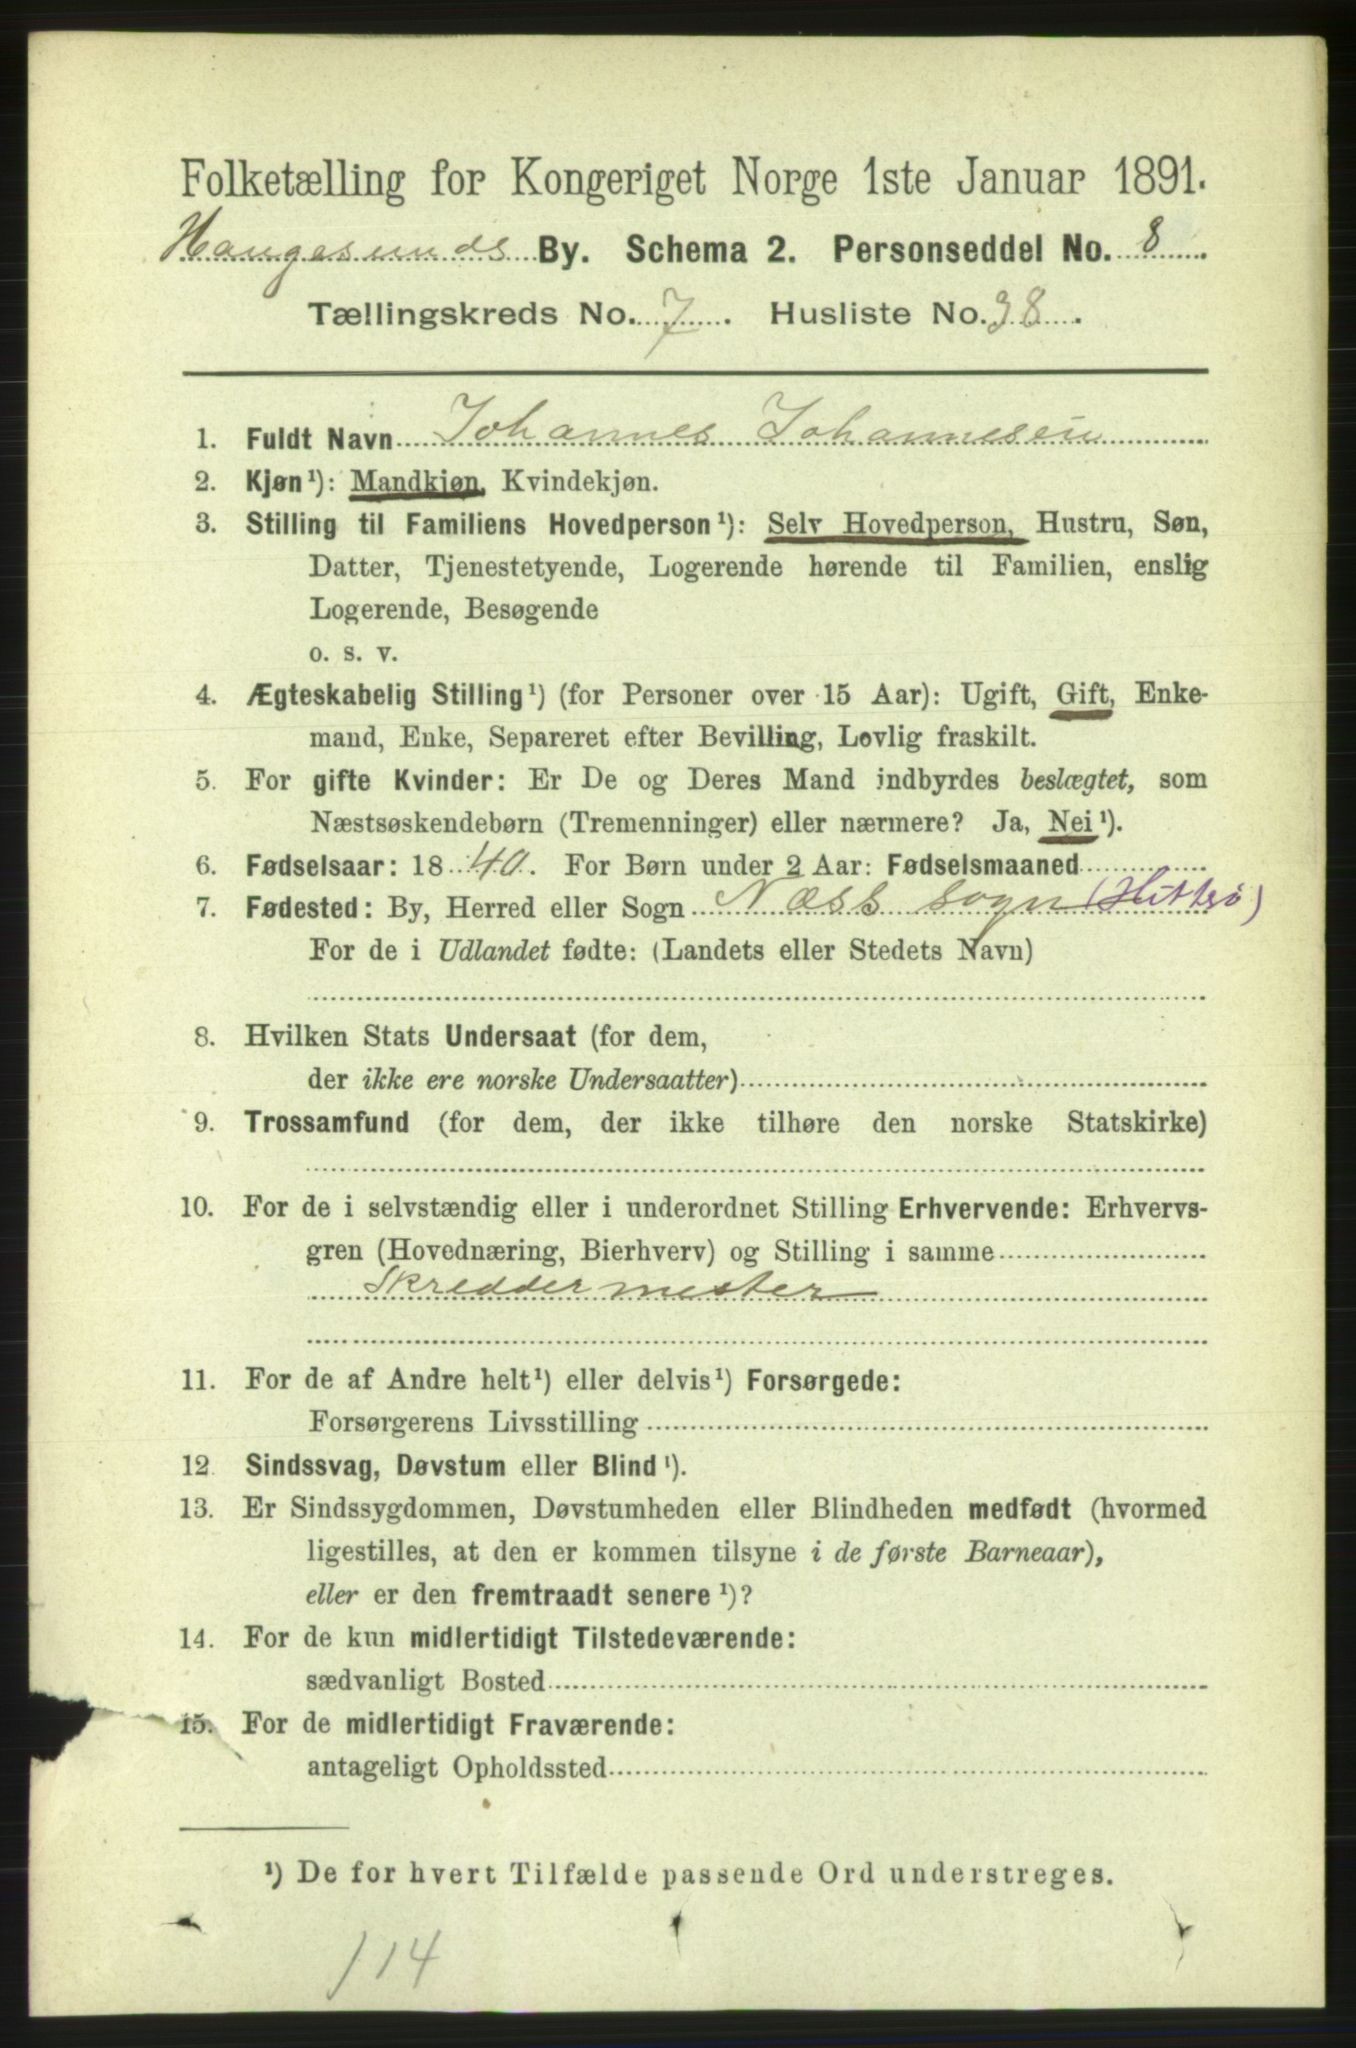 Folketælling for Kongeriget Norge 1ste Januar 1891.
Haugesunds By. Schema 2. Personseddel No. 8.
Tællingskreds No. 7. Husliste No. 38.
1. Fuldt Navn Johannes Johannesen
2. Kjøn¹): Mandkjøn, Kvindekjøn.
3. Stilling til Familiens Hovedperson¹): Selv Hovedperson, Hustru, Søn,
Datter, Tjenestetyende, Logerende hørende til Familien, enslig
Logerende, Besøgende
o. s. v.
4. Ægteskabelig Stilling¹) (for Personer over 15 Aar): Ugift, Gift, Enke-
mand, Enke, Separeret efter Bevilling, Lovlig fraskilt.
5. For gifte Kvinder: Er De og Deres Mand indbyrdes beslægtet, som
Næstsøskendebørn (Tremenninger) eller nærmere? Ja, Nei¹).
6. Fødselsaar: 1840. For Børn under 2 Aar: Fødselsmaaned
7. Fødested: By, Herred eller Sogn Næss sogn (Hitterø)
For de i Udlandet fødte: (Landets eller Stedets Navn)
8. Hvilken Stats Undersaat (for dem,
der ikke ere norske Undersaatter)
9. Trossamfund (for dem, der ikke tilhøre den norske Statskirke)
10. For de i selvstændig eller i underordnet Stilling Erhvervende: Erhvervs-
gren (Hovednæring, Bierhverv) og Stilling i samme
Skreddermester
11. For de af Andre helt¹) eller delvis¹) Forsørgede:
Forsørgerens Livsstilling
12. Sindssvag, Døvstum eller Blind¹).
13. Er Sindssygdommen, Døvstumheden eller Blindheden medfødt (hvormed
ligestilles, at den er kommen tilsyne i de første Barneaar),
eller er den fremtraadt senere¹)?
14. For de kun midlertidigt Tilstedeværende:
sædvanligt Bosted
15. For de midlertidigt Fraværende:
antageligt Opholdssted
¹) De for hvert Tilfælde passende Ord understreges.
114